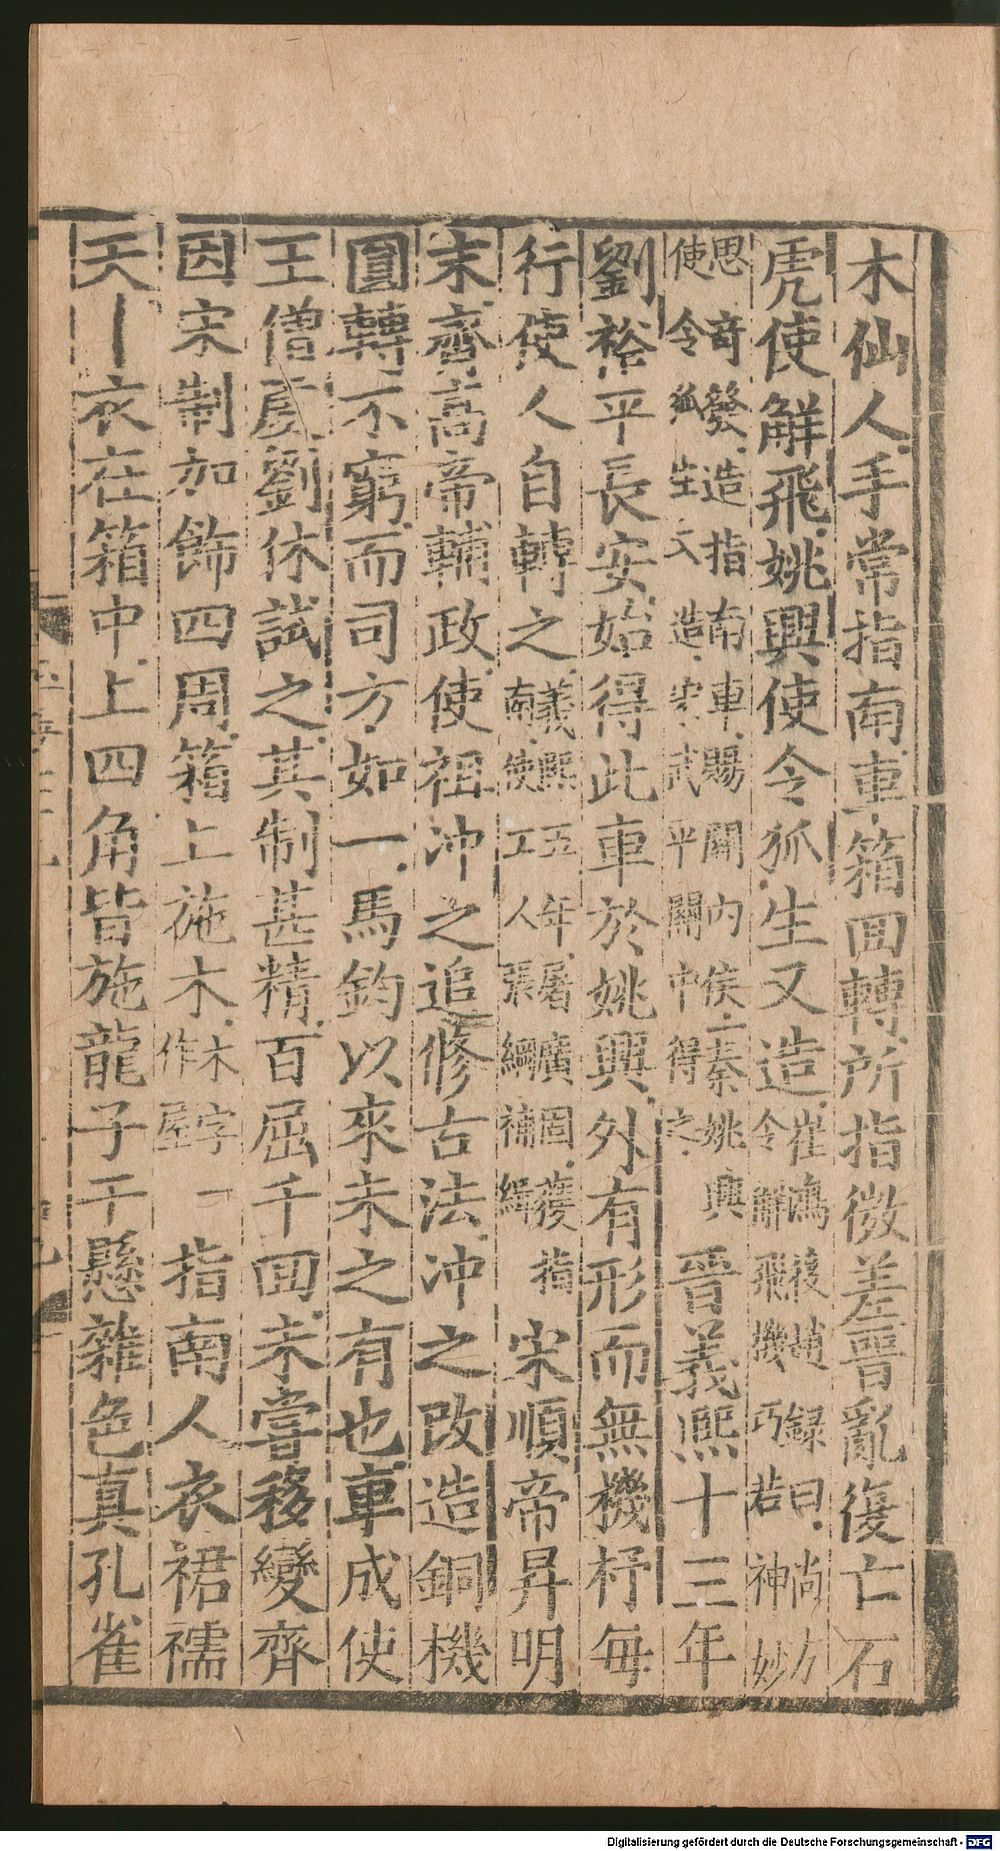 木仙人手常指南車箱回轉所指微差晉亂復亡石
虎使解飛姚興使令狐生又造崔鴻後趙録曰尚方令解飛機巧若神妙
思竒發造指南車賜關內侯二秦姚興使令狐生又造宋武平關中得之晉義熙十三年
劉裕平長安始得此車於姚興外有形而無機杼每
行使人自轉之義熙五年屠廣固獲指南使工人張綱補緝宋順帝昇明
末齊髙帝輔政使祖冲之追修古法冲之改造銅機
圓轉不窮而司方如一馬鈞以來未之有也車成使
王僧虔劉休試之其制甚精百屈千回未嘗移變齊
因宋制加飾四周箱上施木木字作屋一指南人衣裙襦
天丨衣在箱中上四角皆施龍子干懸雜色真孔雀
Digitalisierung gefördert durch die Deutsche Forschungsgemeinschaft - DFG